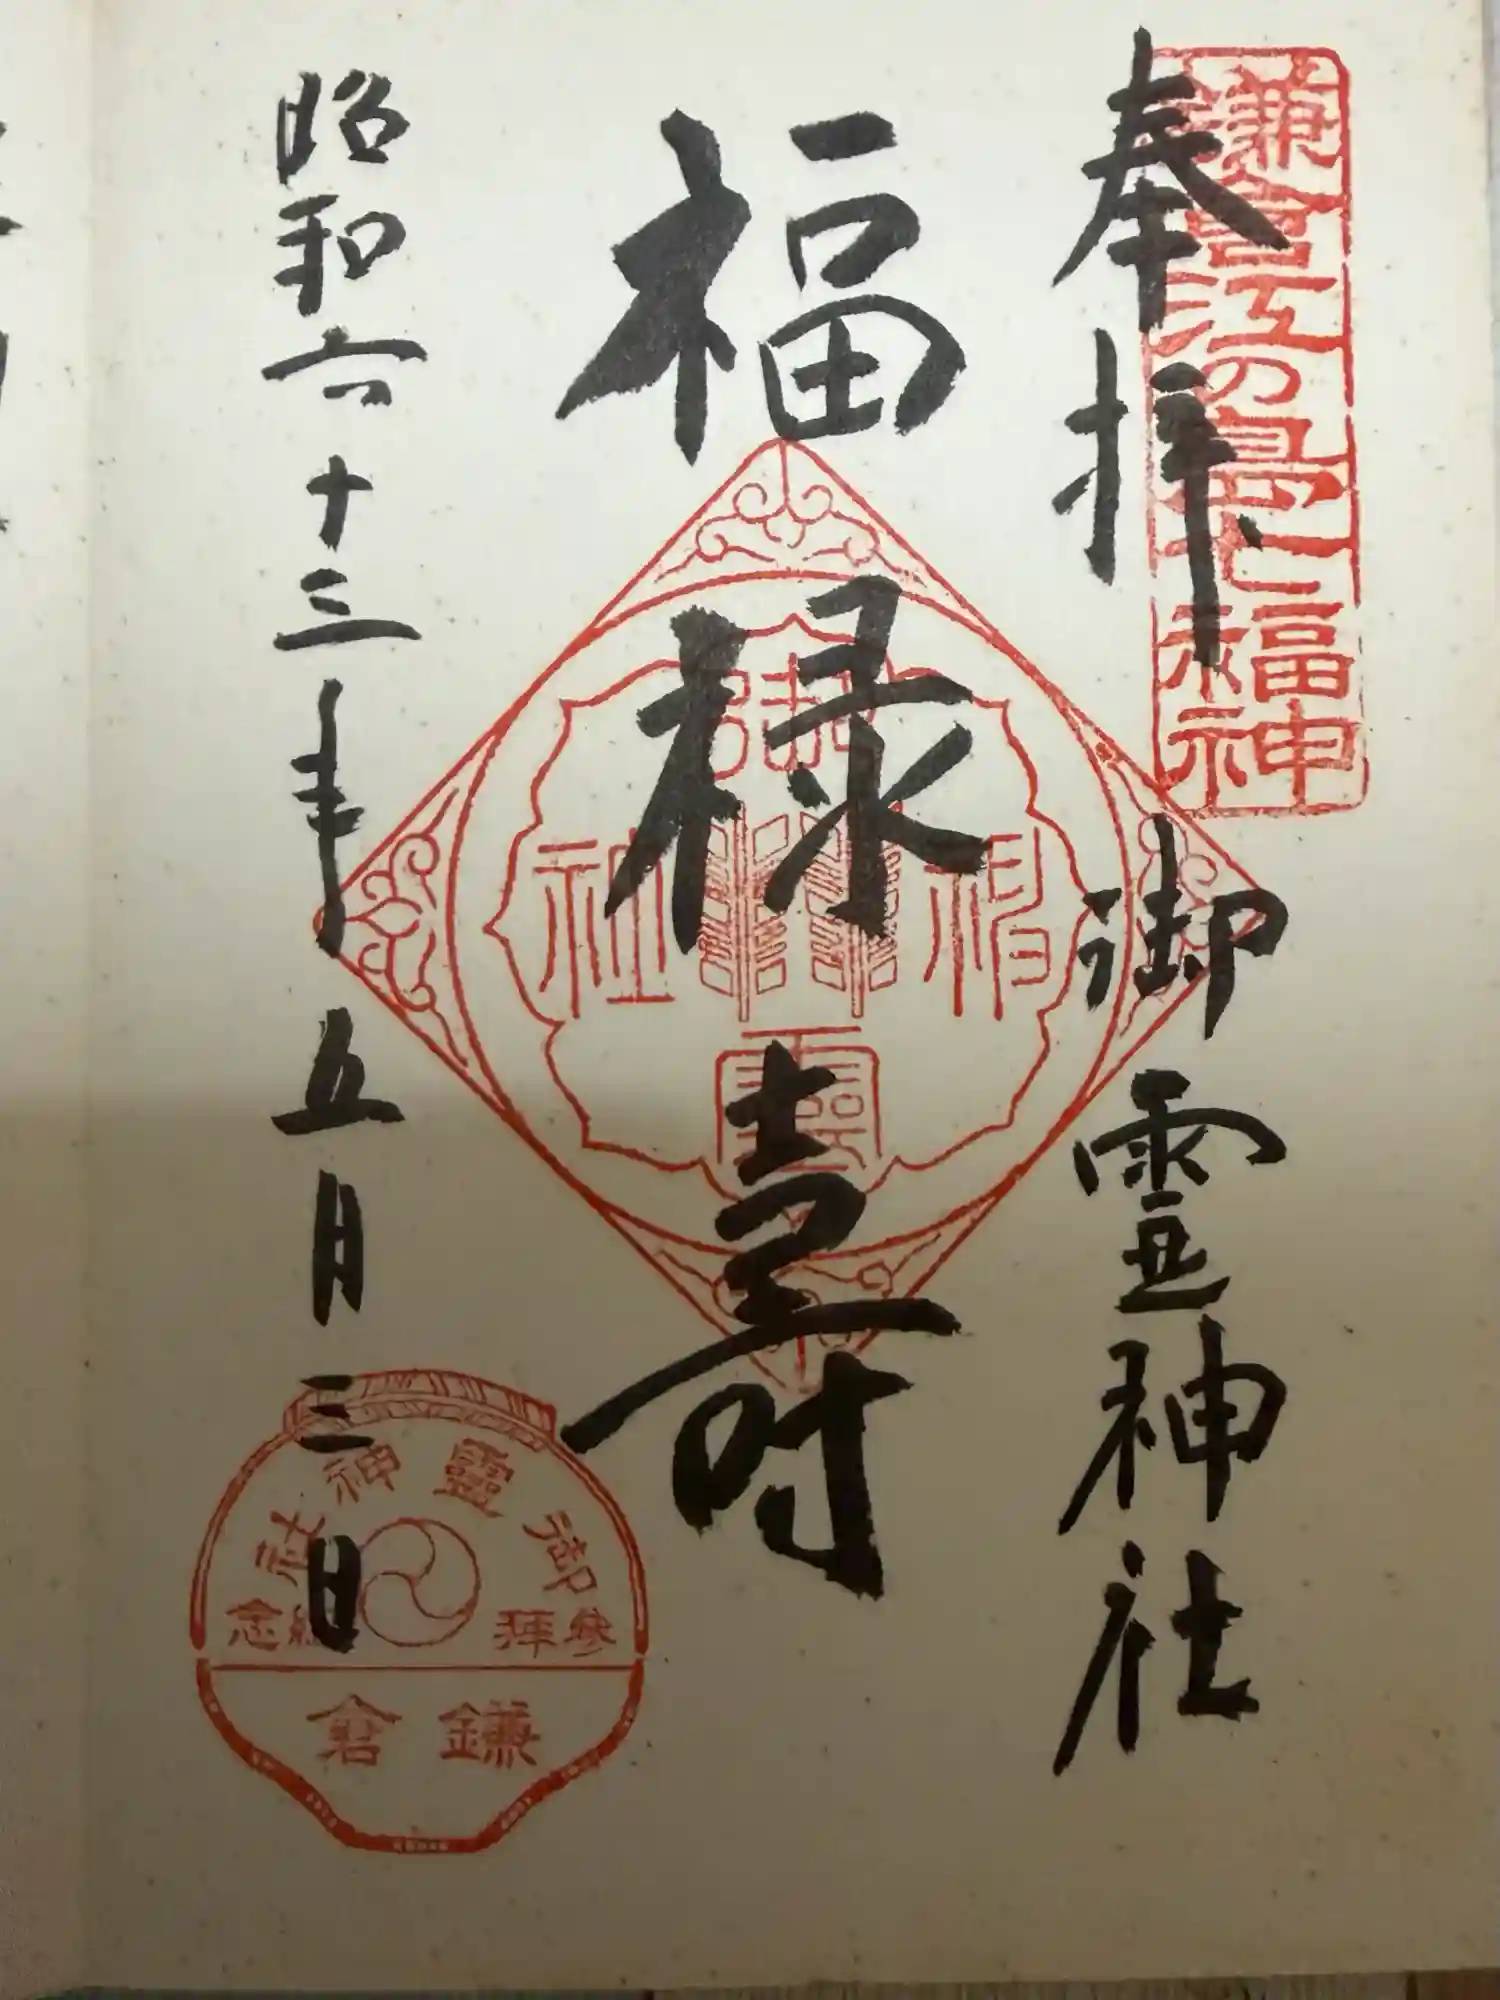 奉拝 御霊神社
鎌倉江の島七福神
福禄寿
御霊神社
昭和六十三年五月三日
御靈神社
参拝紀念
鎌倉